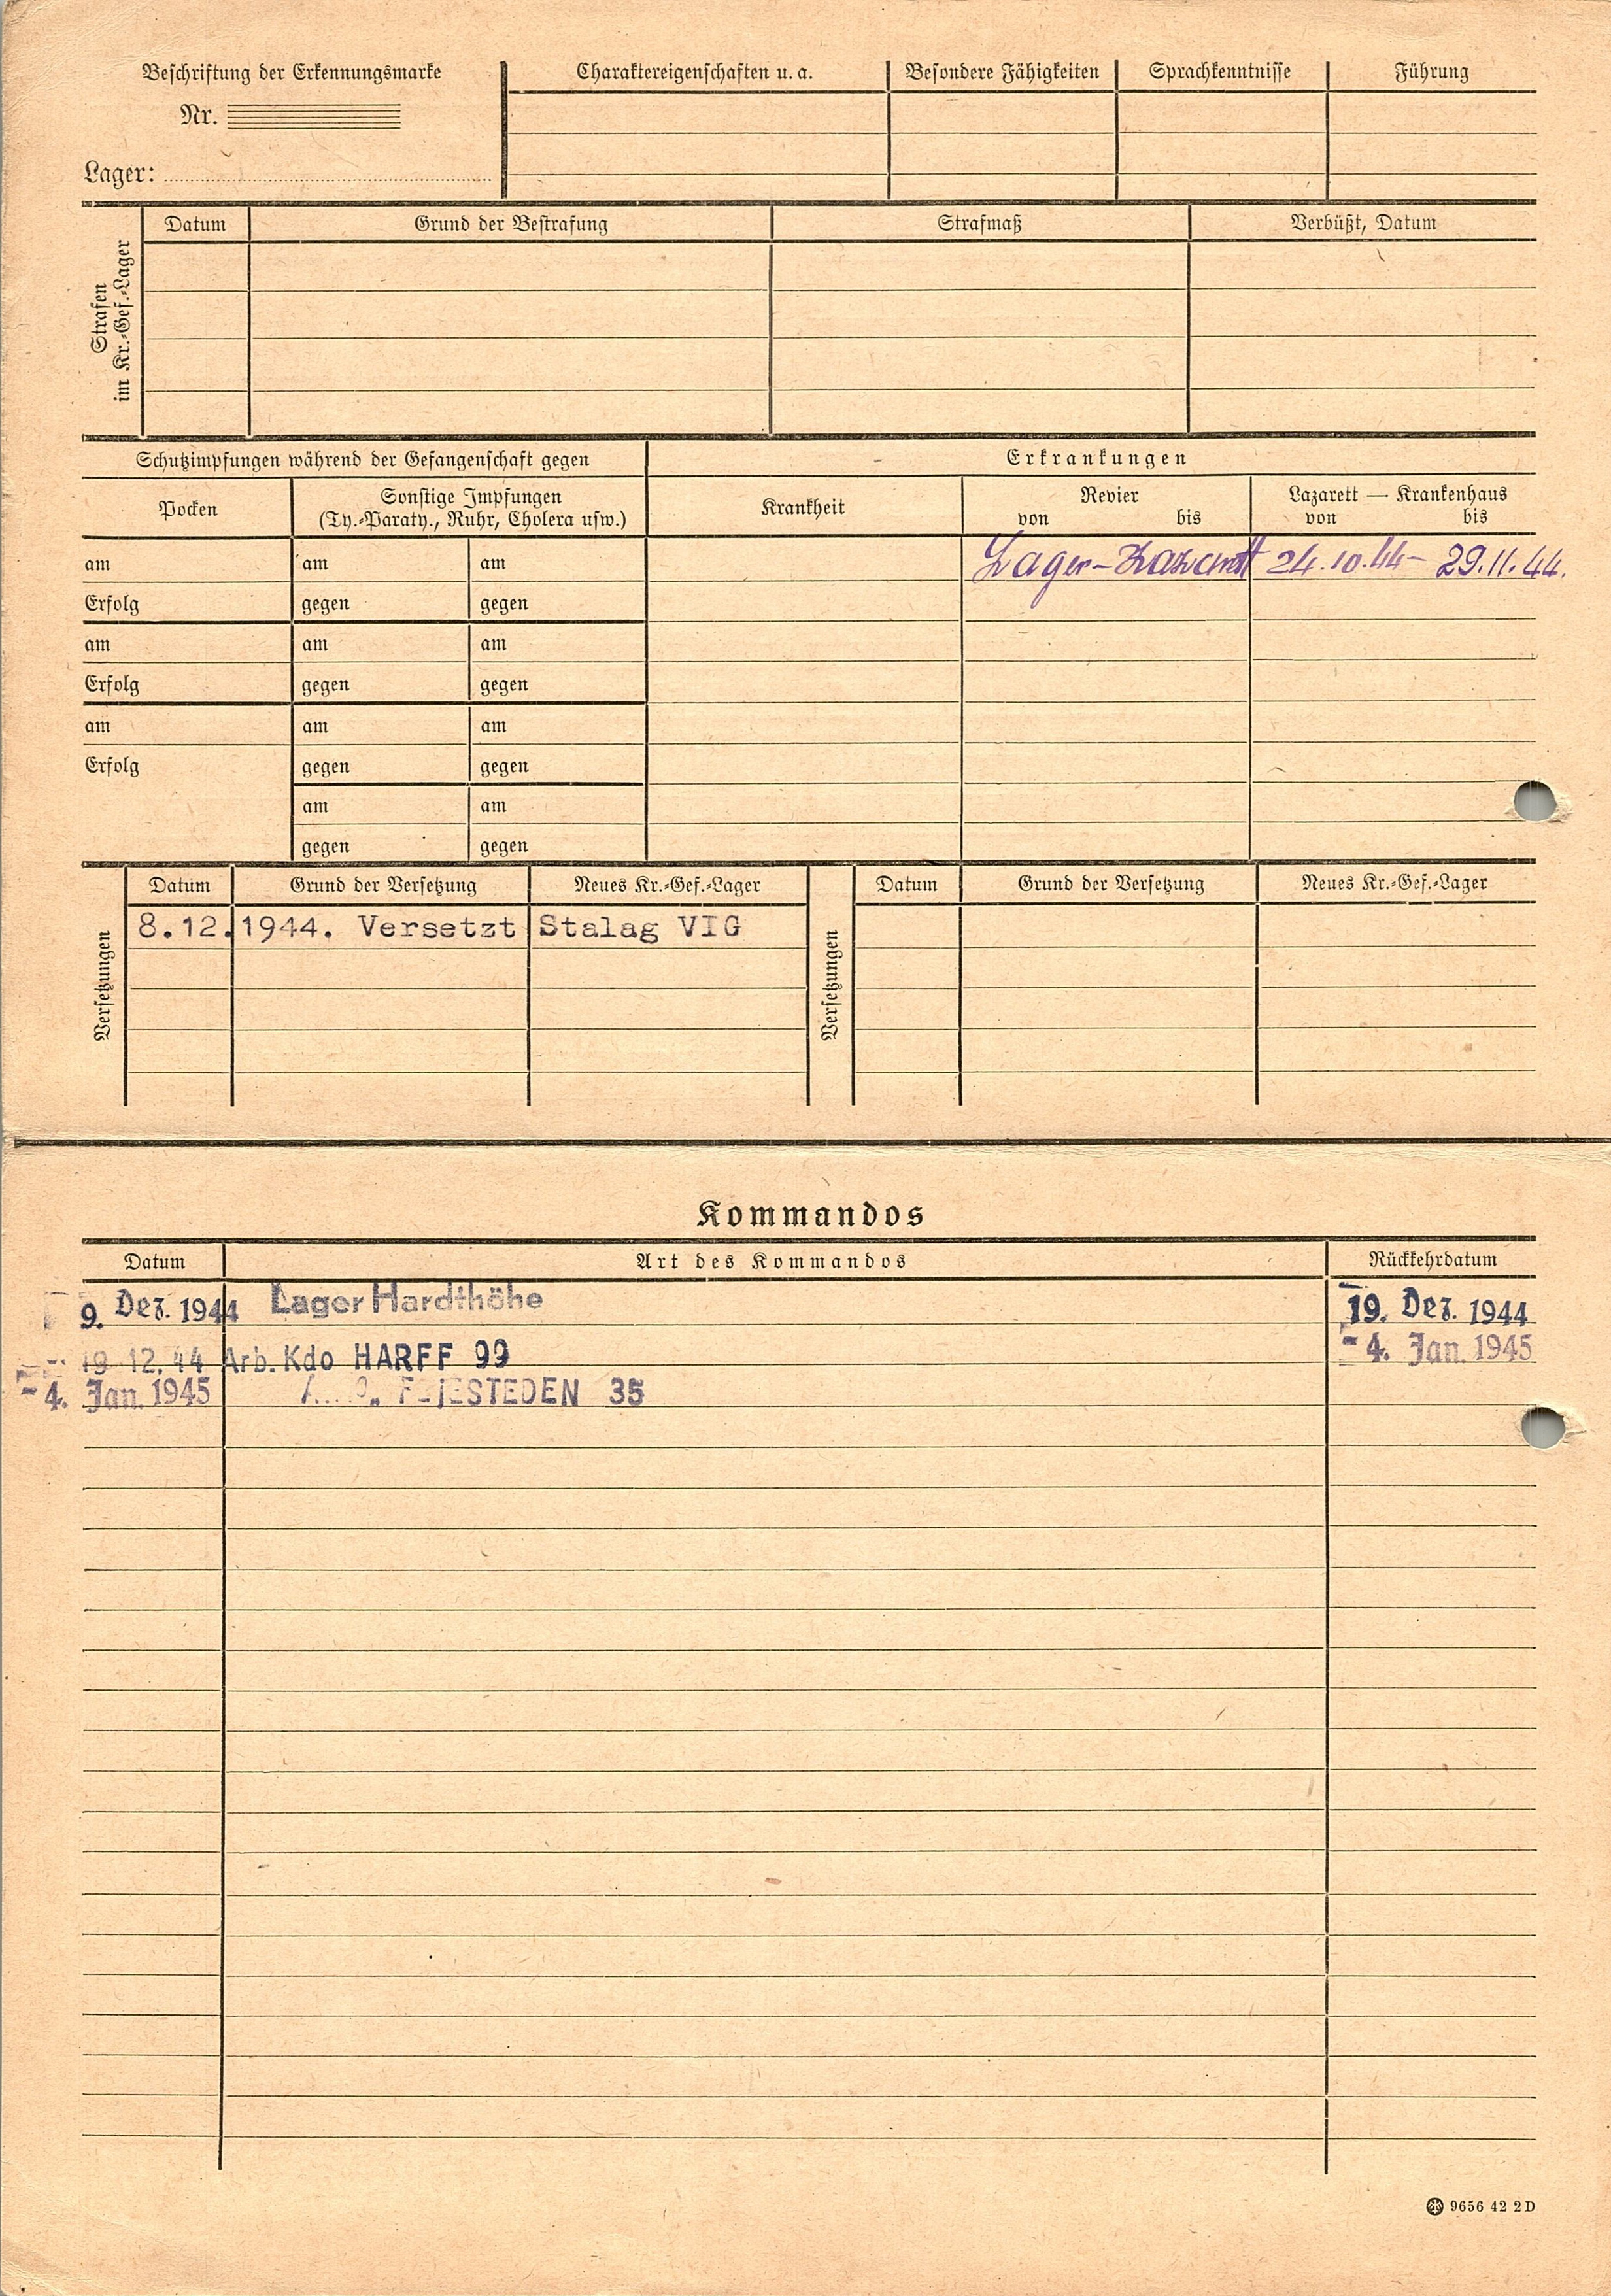 Beschriftung der Erkennungsmarke
Nr.
Lager:
Charaktereigenschaften u. a.
Besondere Fähigkeiten
Sprachkenntnisse
Führung
Strafen
im Kr.-Gef.-Lager
Datum
Grund der Bestrafung
Strafmaß
Verbüßt, Datum
Schutzimpfungen während der Gefangenschaft gegen
Erkrankungen
Pocken
Sonstige Impfungen
(Ty.-Paraty., Ruhr, Cholera usw.)
Krankheit
Revier
von bis
Lazarett — Krankenhaus
von bis
am am am
Lager-Lazarett 24.10.44 – 29.11.44.
Erfolg gegen gegen
am am am
Erfolg gegen gegen
am am am
Erfolg gegen gegen
am am
gegen gegen
Versetzungen
Datum Grund der Versetzung Neues Kr.-Gef.-Lager
8.12.1944. Versetzt Stalag VIG
Versetzungen
Datum Grund der Versetzung Neues Kr.-Gef.-Lager
Kommandos
Datum Art des Kommandos Rückkehrdatum
9. Dez. 1944 Lager Hardthöhe 19. Dez. 1944
19 12. 44 Arb. Kdo HARFF 99 -4. Jan. 1945
-4. Jan. 1945 35
9656 42 2 D